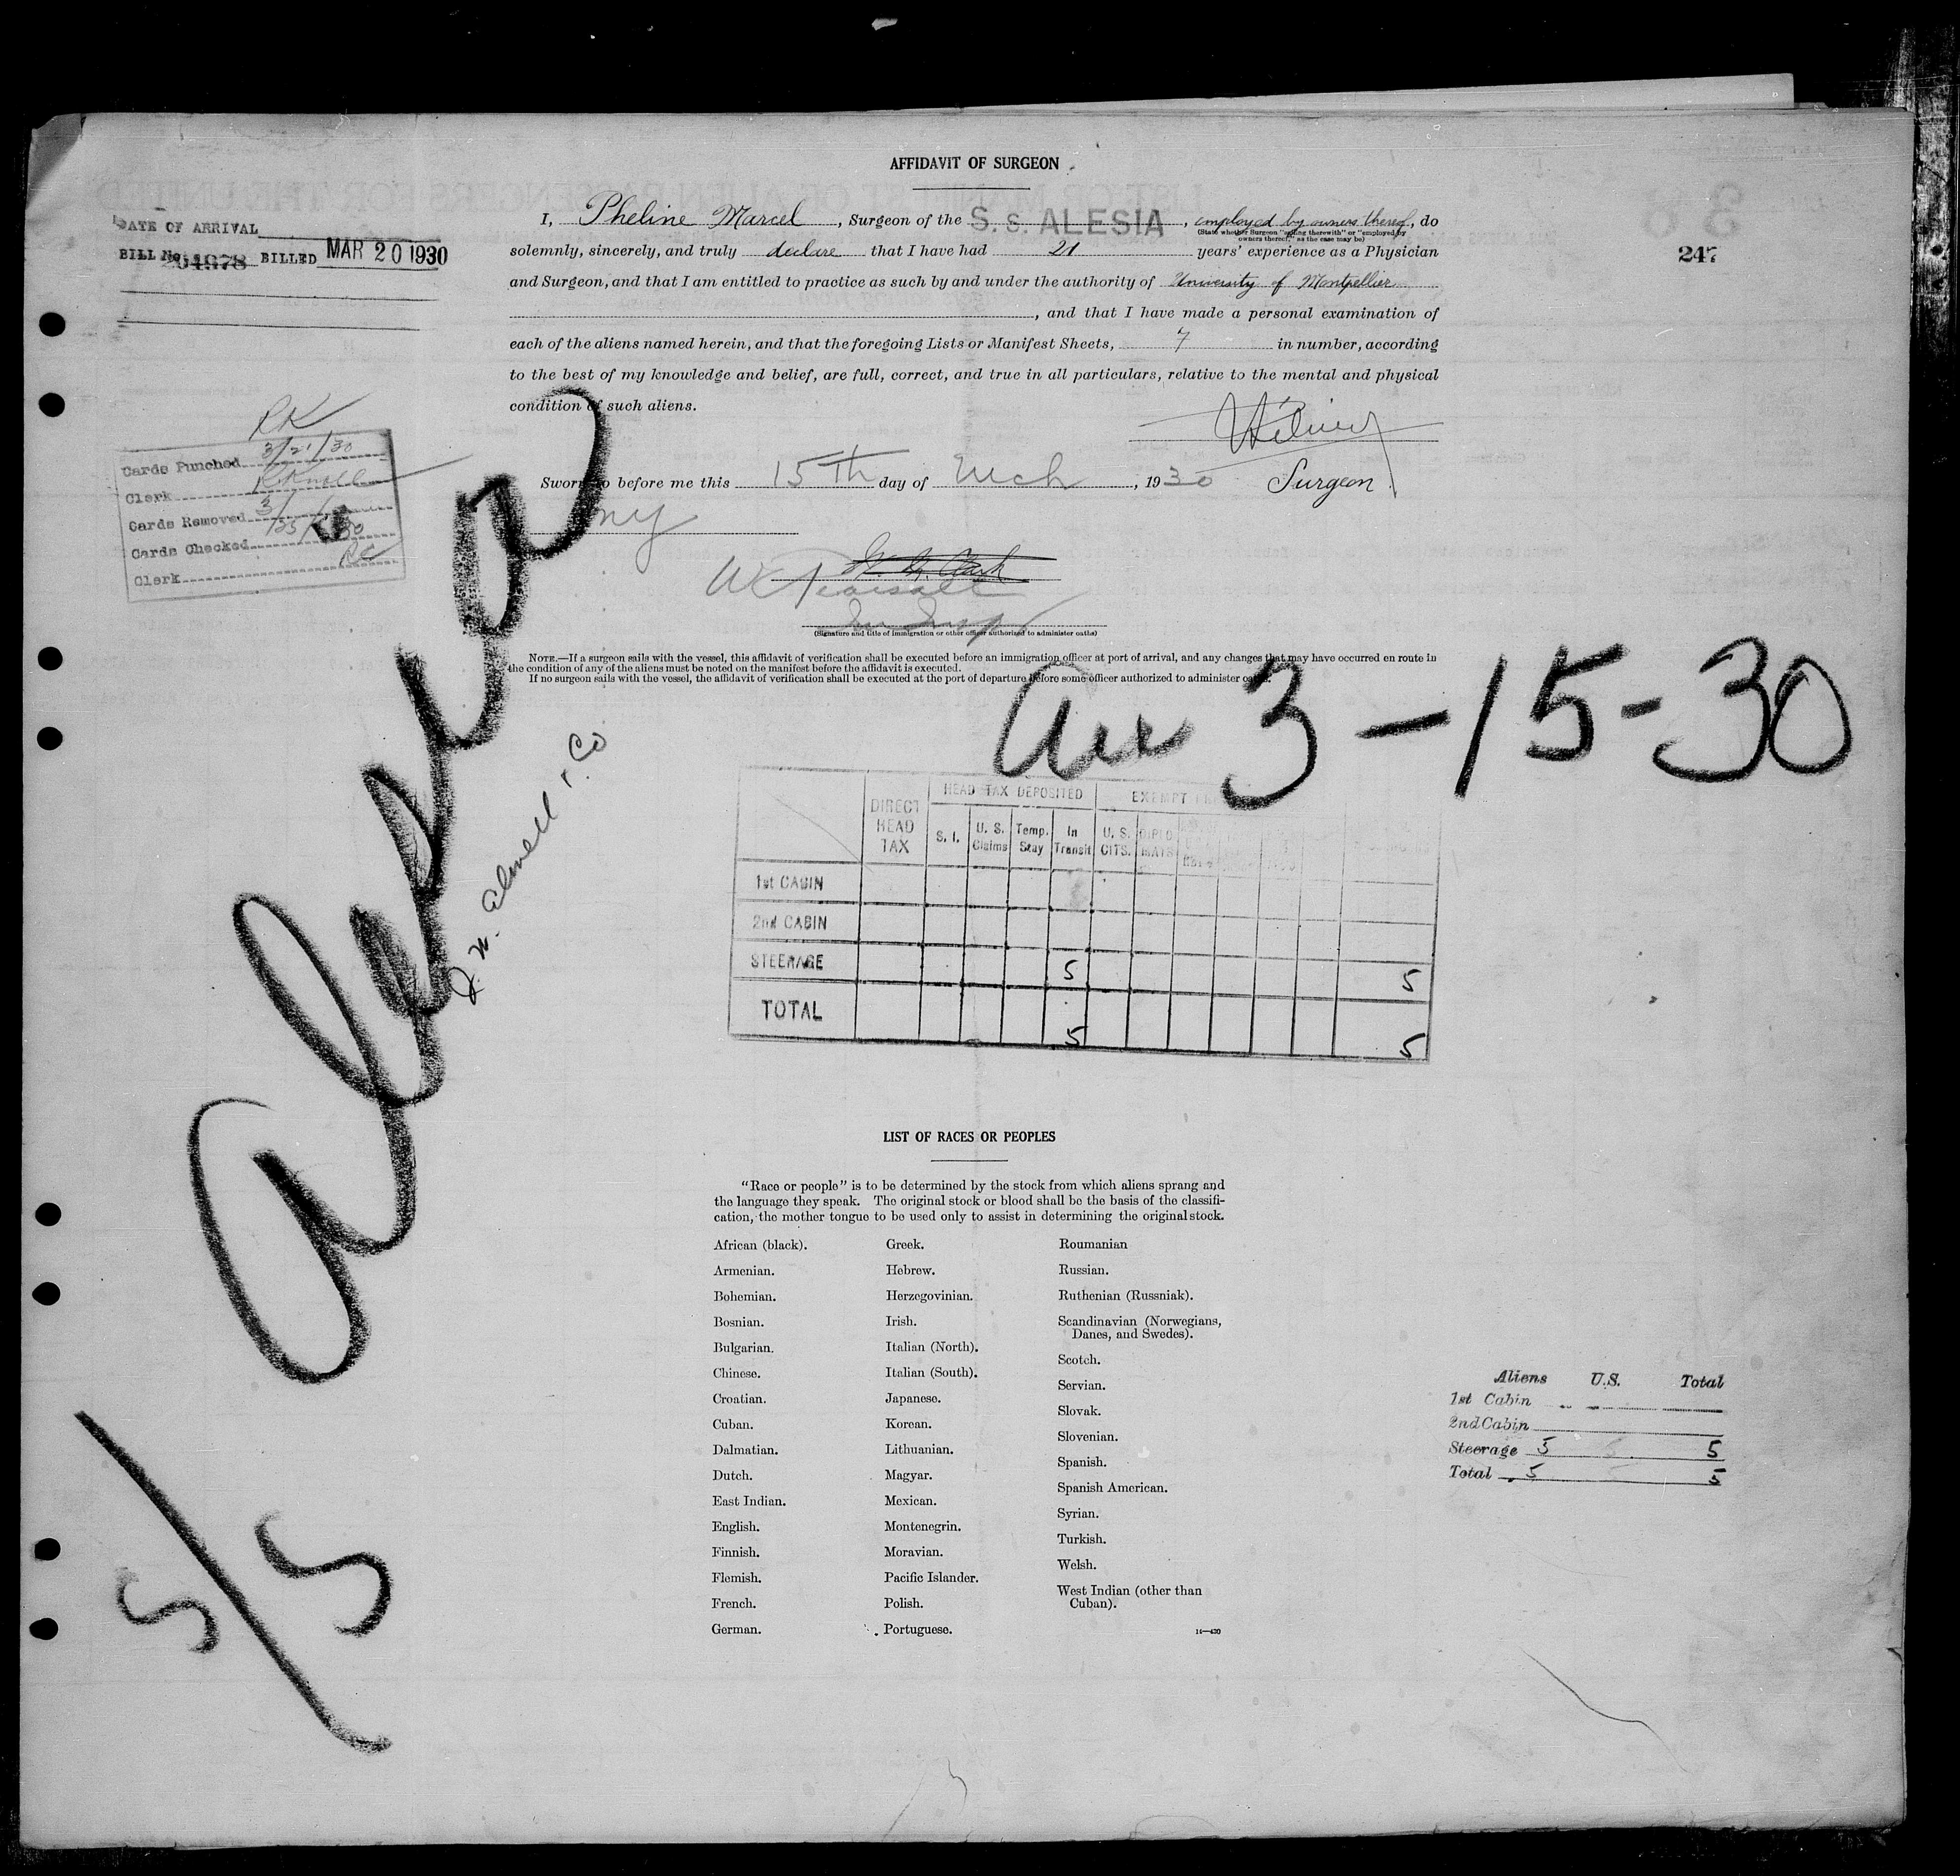 AFFIDAVIT OF SURGEON
I, Pheline Marcel, Surgeon of the S.S. ALESIA, employed by owners thereof, do
(State whether Surgeon "sailing therewith" or "employed by owners thereof," as the case may be)
solemnly, sincerely, and truly declare that I have had 21 years' experience as a Physician
and Surgeon, and that I am entitled to practice as such by and under the authority of University of Montpellier
, and that I have made a personal examination of
each of the aliens named herein, and that the foregoing Lists or Manifest Sheets, 7 in number, according
to the best of my knowledge and belief, are full, correct, and true in all particulars, relative to the mental and physical
condition of such aliens.
Surgeon
Sworn to before me this 15th day of Mch, 1930
NY
(Signature and title of immigration or other officer authorized to administer oaths)
NOTE.—If a surgeon sails with the vessel, this affidavit of verification shall be executed before an immigration officer at port of arrival, and any changes that may have occurred en route in
the condition of any of the aliens must be noted on the manifest before the affidavit is executed.
If no surgeon sails with the vessel, the affidavit of verification shall be executed at the port of departure before some officer authorized to administer oaths.
DATE OF ARRIVAL
BILL No. BILLED MAR 20 1930
RK
Cards Punched 3/21/30
Clerk
Cards Removed 3/
Cards Checked /25/30
Clerk RC
Alesia
Arr 3-15-30
5/5
DIRECT HEAD TAX
HEAD TAX DEPOSITED
EXEMPT
S. I. U. S. Claims Temp. Stay In Transit U. S. CITS. DIPLOMATS
1st CABIN
2nd CABIN
STEERAGE 5 5
TOTAL 5 5
LIST OF RACES OR PEOPLES
"Race or people" is to be determined by the stock from which aliens sprang and
the language they speak. The original stock or blood shall be the basis of the classifi-
cation, the mother tongue to be used only to assist in determining the original stock.
African (black).
Armenian.
Bohemian.
Bosnian.
Bulgarian.
Chinese.
Croatian.
Cuban.
Dalmatian.
Dutch.
East Indian.
English.
Finnish.
Flemish.
French.
German.
Greek.
Hebrew.
Herzegovinian.
Irish.
Italian (North).
Italian (South).
Japanese.
Korean.
Lithuanian.
Magyar.
Mexican.
Montenegrin.
Moravian.
Pacific Islander.
Polish.
Portuguese.
Roumanian
Russian.
Ruthenian (Russniak).
Scandinavian (Norwegians,
Danes, and Swedes).
Scotch.
Servian.
Slovak.
Slovenian.
Spanish.
Spanish American.
Syrian.
Turkish.
Welsh.
West Indian (other than
Cuban).
Aliens U.S. Total
1st Cabin
2nd Cabin
Steerage 5 5
Total 5 5